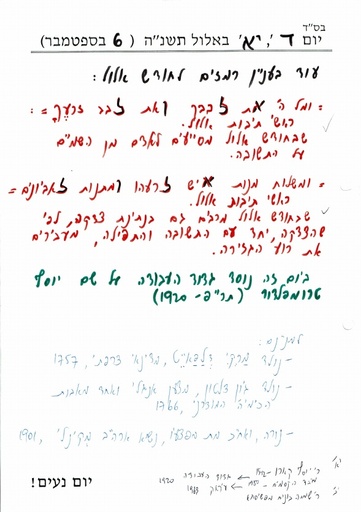 בס"ד
יום ד', י"א באלול תשנ"ה ( 6 בספטמבר)
עוד בענין רמזים לחודש אלול:
= ומל ה' את לבבך ואת לבב זרעך = :
ראשי תיבות אלול.
שבחודש אלול מסייעים לאדם מן השמים
על התשובה.
= ומשלוח מנות איש לרעהו ומתנות לאביונים =
ראשי תיבות אלול.
שבחודש אלול מרבים גם בנתינת צדקה, לפי
שהצדקה, יחד עם התשובה והתפילה, מעבירים
את רוע הגזירה.
ביום זה נוסד גדוד העבודה על שם יוסף
טרומפלדור (תר"פ - 1920)
- נולד מרקי דלפאייט, מדינאי צרפתי, 1757
- נולד ג'ון דלטון, אנגלי ואחד מאבות
הכימיה המודרנית, 1766
- נורה, ואח"כ מת מפצעיו, נשיא ארה"ב מקינלי, 1901
יום נעים!
גדוד העבודה 1920